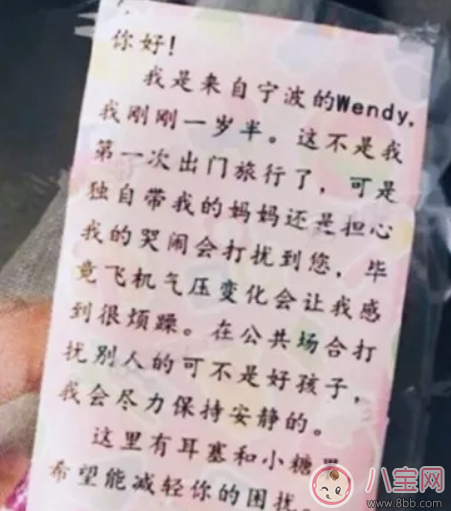 你好!
我是来自宁波的Wendy,
我刚刚一岁半。这不是我
第一次出门旅行了,可是
独自带我的妈妈还是担心
我的哭闹会打扰到您,毕
竟飞机气压变化会让我感
到很烦躁。在公共场合打
扰别人的可不是好孩子,
我会尽力保持安静的。
这里有耳塞和小糖果
希望能减轻你的困扰。
八宝网
www.8bb.com